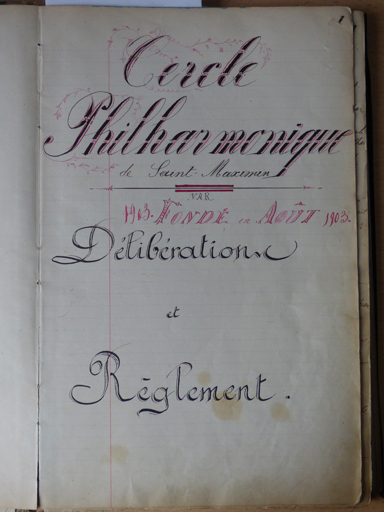 1
Cercle
Philharmonique
de Saint-Maximin
VAR
1903. FONDÉ en AOÛT 1903.
Délibérations
et
Règlement.